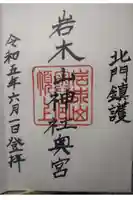 北門鎮護
岩木山神社奥宮
令和五年六月一日登拝